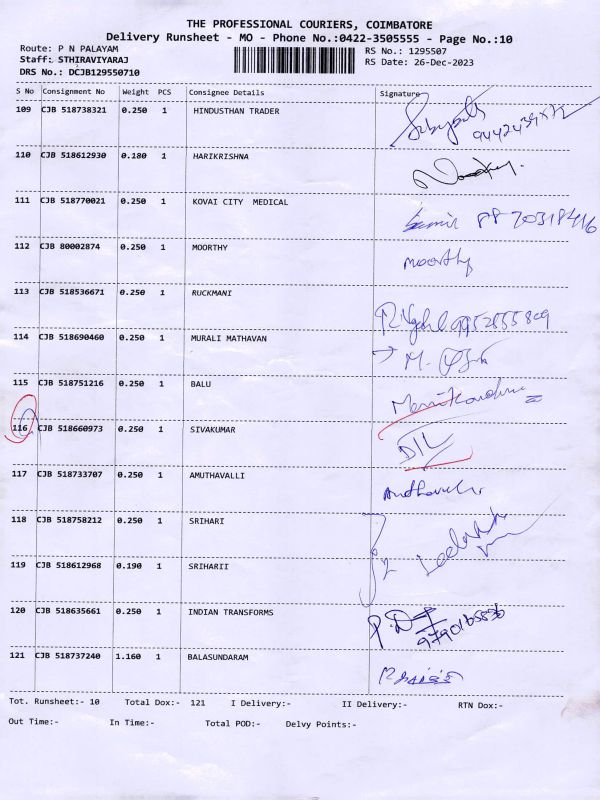 THE PROFESSIONAL COURIERS, COIMBATORE
Delivery Runsheet - MO - Phone No.:0422-3505555 - Page No.:10
Route: P N PALAYAM
RS No.: 1295507
Staff: STHIRAVIYARAJ
RS Date: 26-Dec-2023
DRS No.: DCJB129550710
S No Consignment No Weight PCS Consignee Details Signature
109 CJB 518738321 0.250 1 HINDUSTHAN TRADER
110 CJB 518612930 0.180 1 HARIKRISHNA
111 CJB 518770021 0.250 1 KOVAI CITY MEDICAL
112 CJB 80002874 0.250 1 MOORTHY moorthy
113 CJB 518536671 0.250 1 RUCKMANI
114 CJB 518690460 0.250 1 MURALI MATHAVAN
115 CJB 518751216 0.250 1 BALU
116 CJB 518660973 0.250 1 SIVAKUMAR
117 CJB 518733707 0.250 1 AMUTHAVALLI
118 CJB 518758212 0.250 1 SRIHARI
119 CJB 518612968 0.190 1 SRIHARII
120 CJB 518635661 0.250 1 INDIAN TRANSFORMS
121 CJB 518737240 1.160 1 BALASUNDARAM
Tot. Runsheet:- 10 Total Dox:- 121 I Delivery:- II Delivery:- RTN Dox:-
Out Time:- In Time:- Total POD:- Delvy Points:-